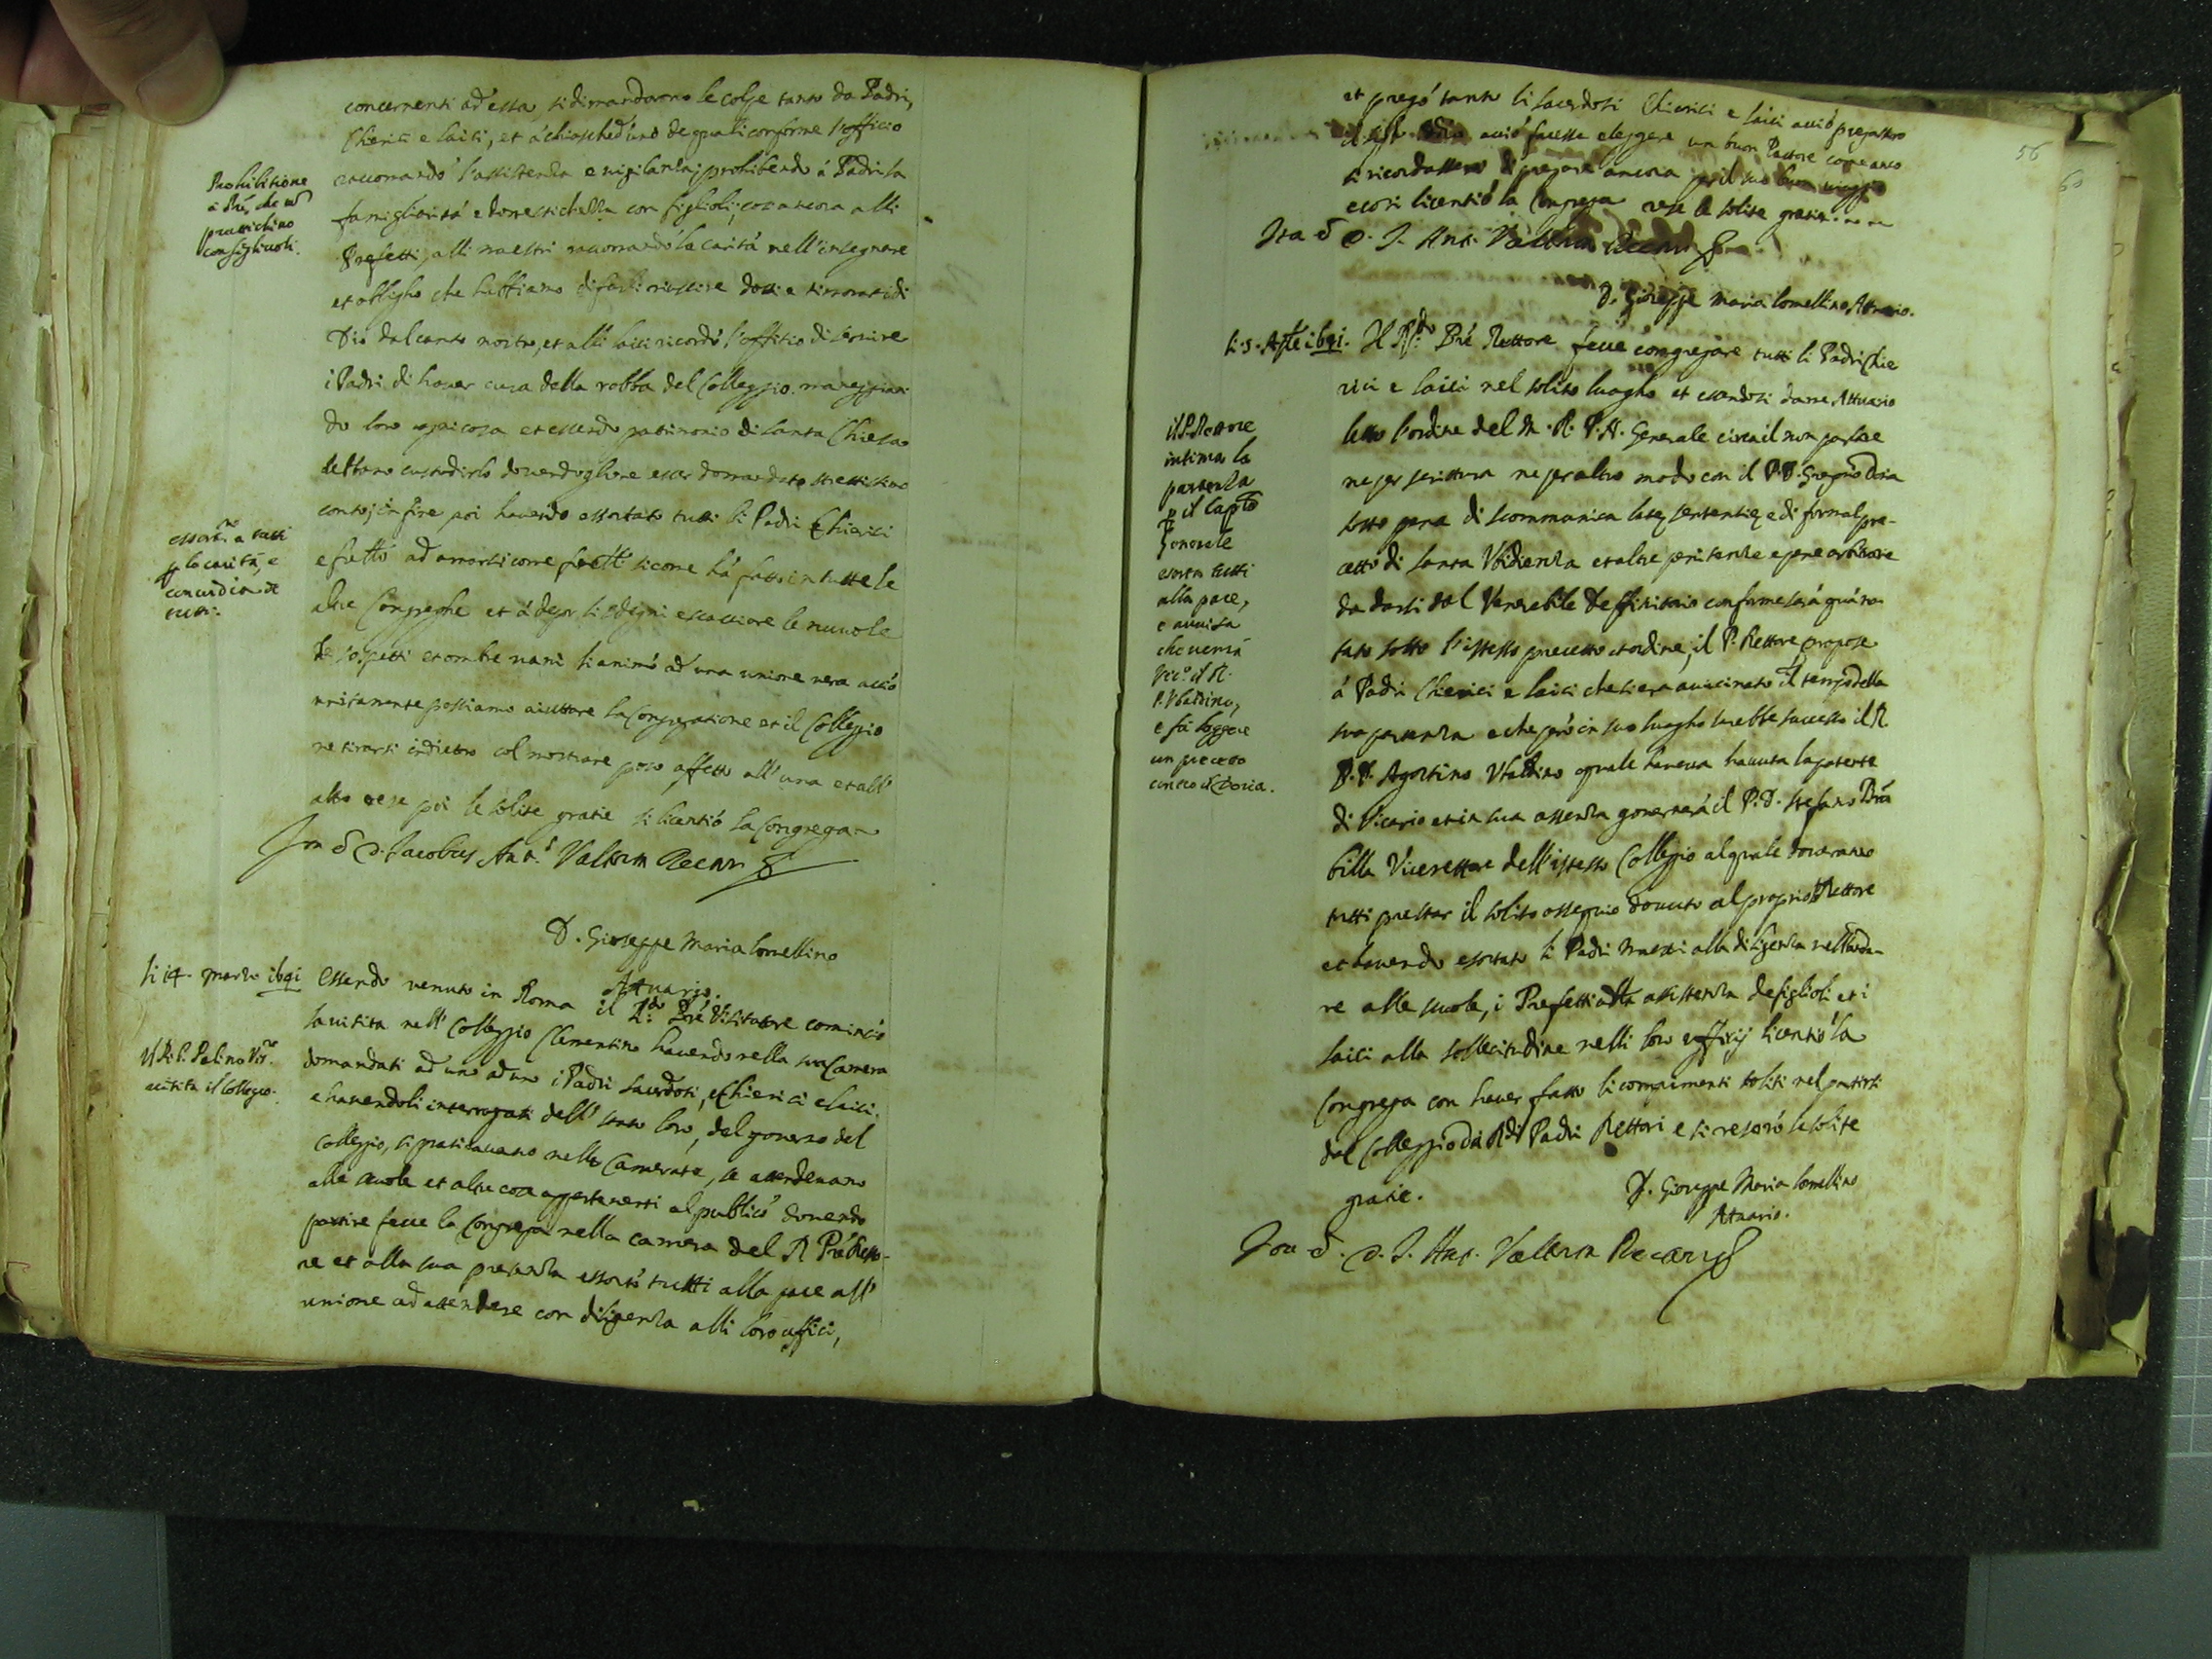 concernenti ad essa, si dimandorono le colpe tanto da Padri,
Chierici e laici, et à ciascheduno de quali conforme l'officio
raccomandò l'assistenza e vigilanza; prohibendo à Padri la
famigliarità e domestichezza con figlioli; cosa ancora alli
Prefetti, alli maestri raccomandò la carità nell'insegnare
et obligho che habbiamo di farli riuscire dotti e timorati di
Dio dal canto nostro, et alli laici ricordò l'offitio di servire
i Padri di haver cura della robba del Colleggio maneggian-
do loro ogni cosa et essendo patrimonio di santa Chiesa
debbano custodirlo dovendogliene esser domandato strettissimo
conto; in fine poi havendo essortato tutti li Padri Chierici
e fratti ad amarsi come fratti sicome hà fatto in tutte le
altre Congreghe et à depor li sdegni e scacciare le nuvole
de sospetti et ombre vani li animò ad una unione vera acciò
unitamente possiamo aiuttare la Congregatione et il Colleggio
ne tirarsi indietro col mostrare poco affetto all'una et all'
altro rese poi le solite gratie si licentiò la Congrega
Ita è D. Jacobus Ant.s Valtorta Rector
D. Gioseppe Maria Lomellino
Attuario.
Prohibitione
à Pri, che nō
prattichino
con figlivoli.
essortne à tutti
p la carità, e
concordia di
tutti.
li 14. marzo 1691
Essendo venuto in Roma il R.do Prē Visitatore cominciò
la visita nell'Colleggio Clementino havendo nella sua Camera
domandati ad uno ad uno i Padri sacerdoti, e Chierici e laici,
e havendoli interrogati dell'stato loro, del governo del
Colleggio, si praticavano nelle Camerate, se attendevano
alle scuole et altre cose appartenenti al publico dovendo
partire fece la Congrega nella camera del R Prē Retto-
re et alla sua presenza essortò tutti alla pace all'
unione ad attendere con diligenza alli loro uffici,
Il R. P. Visre
visita il Collegio.
56
60
et pregò tanto li sacerdoti Chierici e laici acciò pregassero
acciò facesse eleggere un buon Pastore come anco
si ricordassero di pregare ancora per il suo buon viaggio
e così licentiò la Congrega rese le solite gratie.
Ita è D. J. Ant. Valtorta Rector
D. Gioseppe Maria Lomellino Attuario.
li 5. Aple 1691. Il R.do Prē Rettore fece congregare tutti li Padri Chie
rici e laici nel solito luogho et essendosi da me Attuario
letto l'ordine del M. R. P. N. Generale circa il non parlare
ne per scrittura ne per altro modo con il P. D. Gregorio Doria
sotto pena di scommunica latę sententię e di formal pre-
cetto di santa Vbidienza et altre penitenze e pene arbitrarie
da darsi dal Venerabile Deffinitorio conforme
l'istesso precetto et ordine, il P. Rettore propose
à Padri Chierici e laici che si era avvicinato il tempo della
sua partenza e che però in suo luogho sarebbe successo il R.
P. D. Agostino Vbaldino quale haveva havuta la patente
di Vicario et in sua assenza governerà il P. D. Stefano
Vicerettore dell'istesso Colleggio al quale doveranno
tutti prestar il solito ossequio dovuto al proprio Rettore
et havendo essortato li Padri Maestri alla diligenza
re alle scuole, i Prefetti alla assistenza de figlioli et i
laici alla sollecitudine nelli loro uffitij licentiò la
Congrega con haver fatto li complimenti soliti nel partirsi
dal Colleggio da Rdi Padri Rettori e si resero le solite
gratie.
D. Gioseppe Maria Lomellino
Attuario.
Ita è. D. J. Ant. Valtorta Rector
il P. Rettore
intima la
partenza
p il Caplo
Generale
esorta tutti
alla pace,
e avvisa
che verrà
Vico il R.
P. Vbaldino,
e fà leggere
un precetto
contro il Doria.